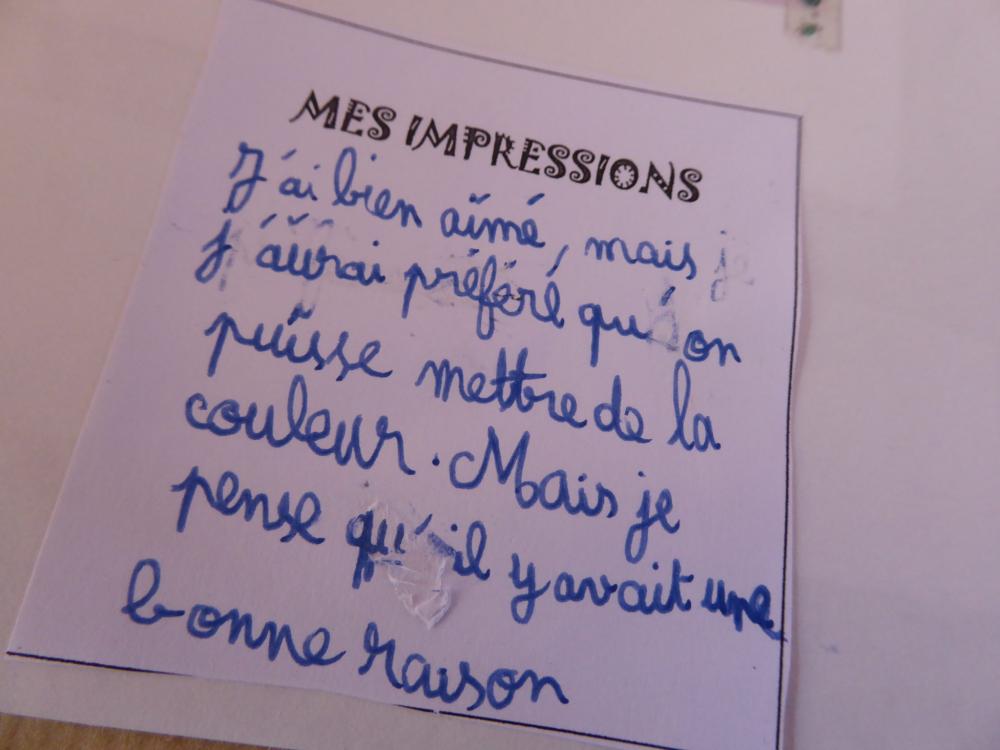 MES IMPRESSIONS
J'ai bien aîmé, mais je
j'aurai préféré qu'on
puisse mettre de la
couleur. Mais je
pense qu'il y avait une
bonne raison